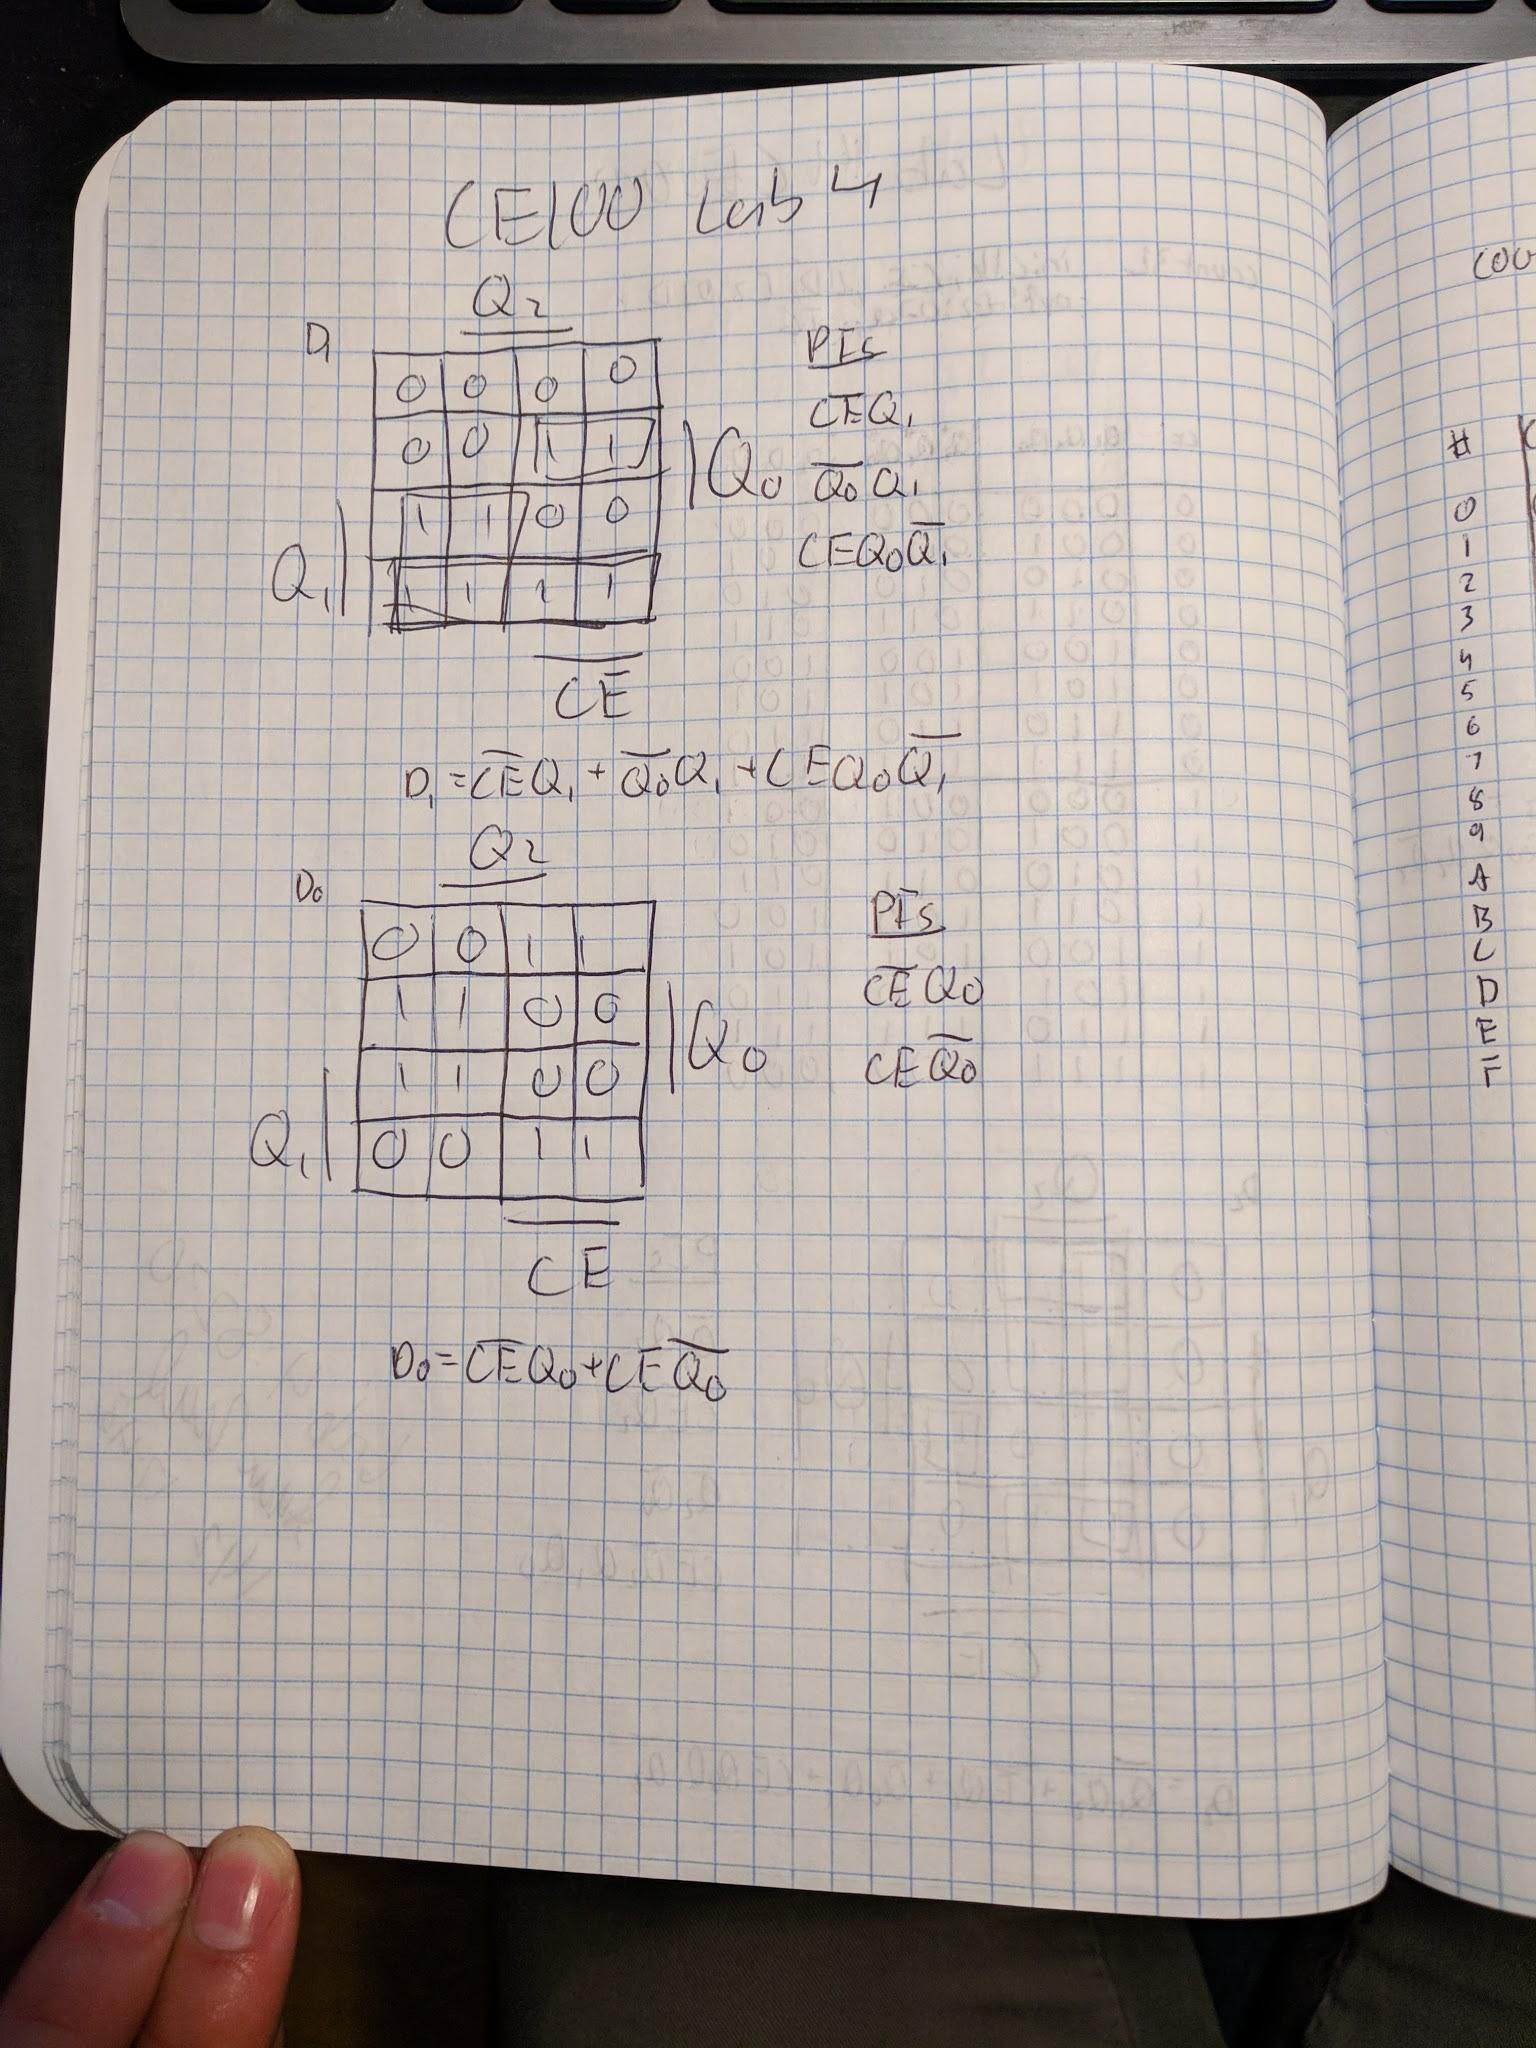 CE100 Lab 4
Q2
D1
0 0 0 0
0 0 1 1
1 1 0 0
1 1 1 1
Q0
Q1
CE
PIs
C̅E̅Q1
Q̅0̅Q1
CEQ0Q̅1̅
D1 = C̅E̅Q1 + Q̅0̅Q1 + CEQ0Q̅1̅
Q2
D0
0 0 1 1
1 1 0 0
1 1 0 0
0 0 1 1
Q0
Q1
CE
PIs
C̅E̅Q0
CEQ̅0̅
D0 = C̅E̅Q0 + CEQ̅0̅
COU
#
0
1
2
3
4
5
6
7
8
9
A
B
C
D
E
F